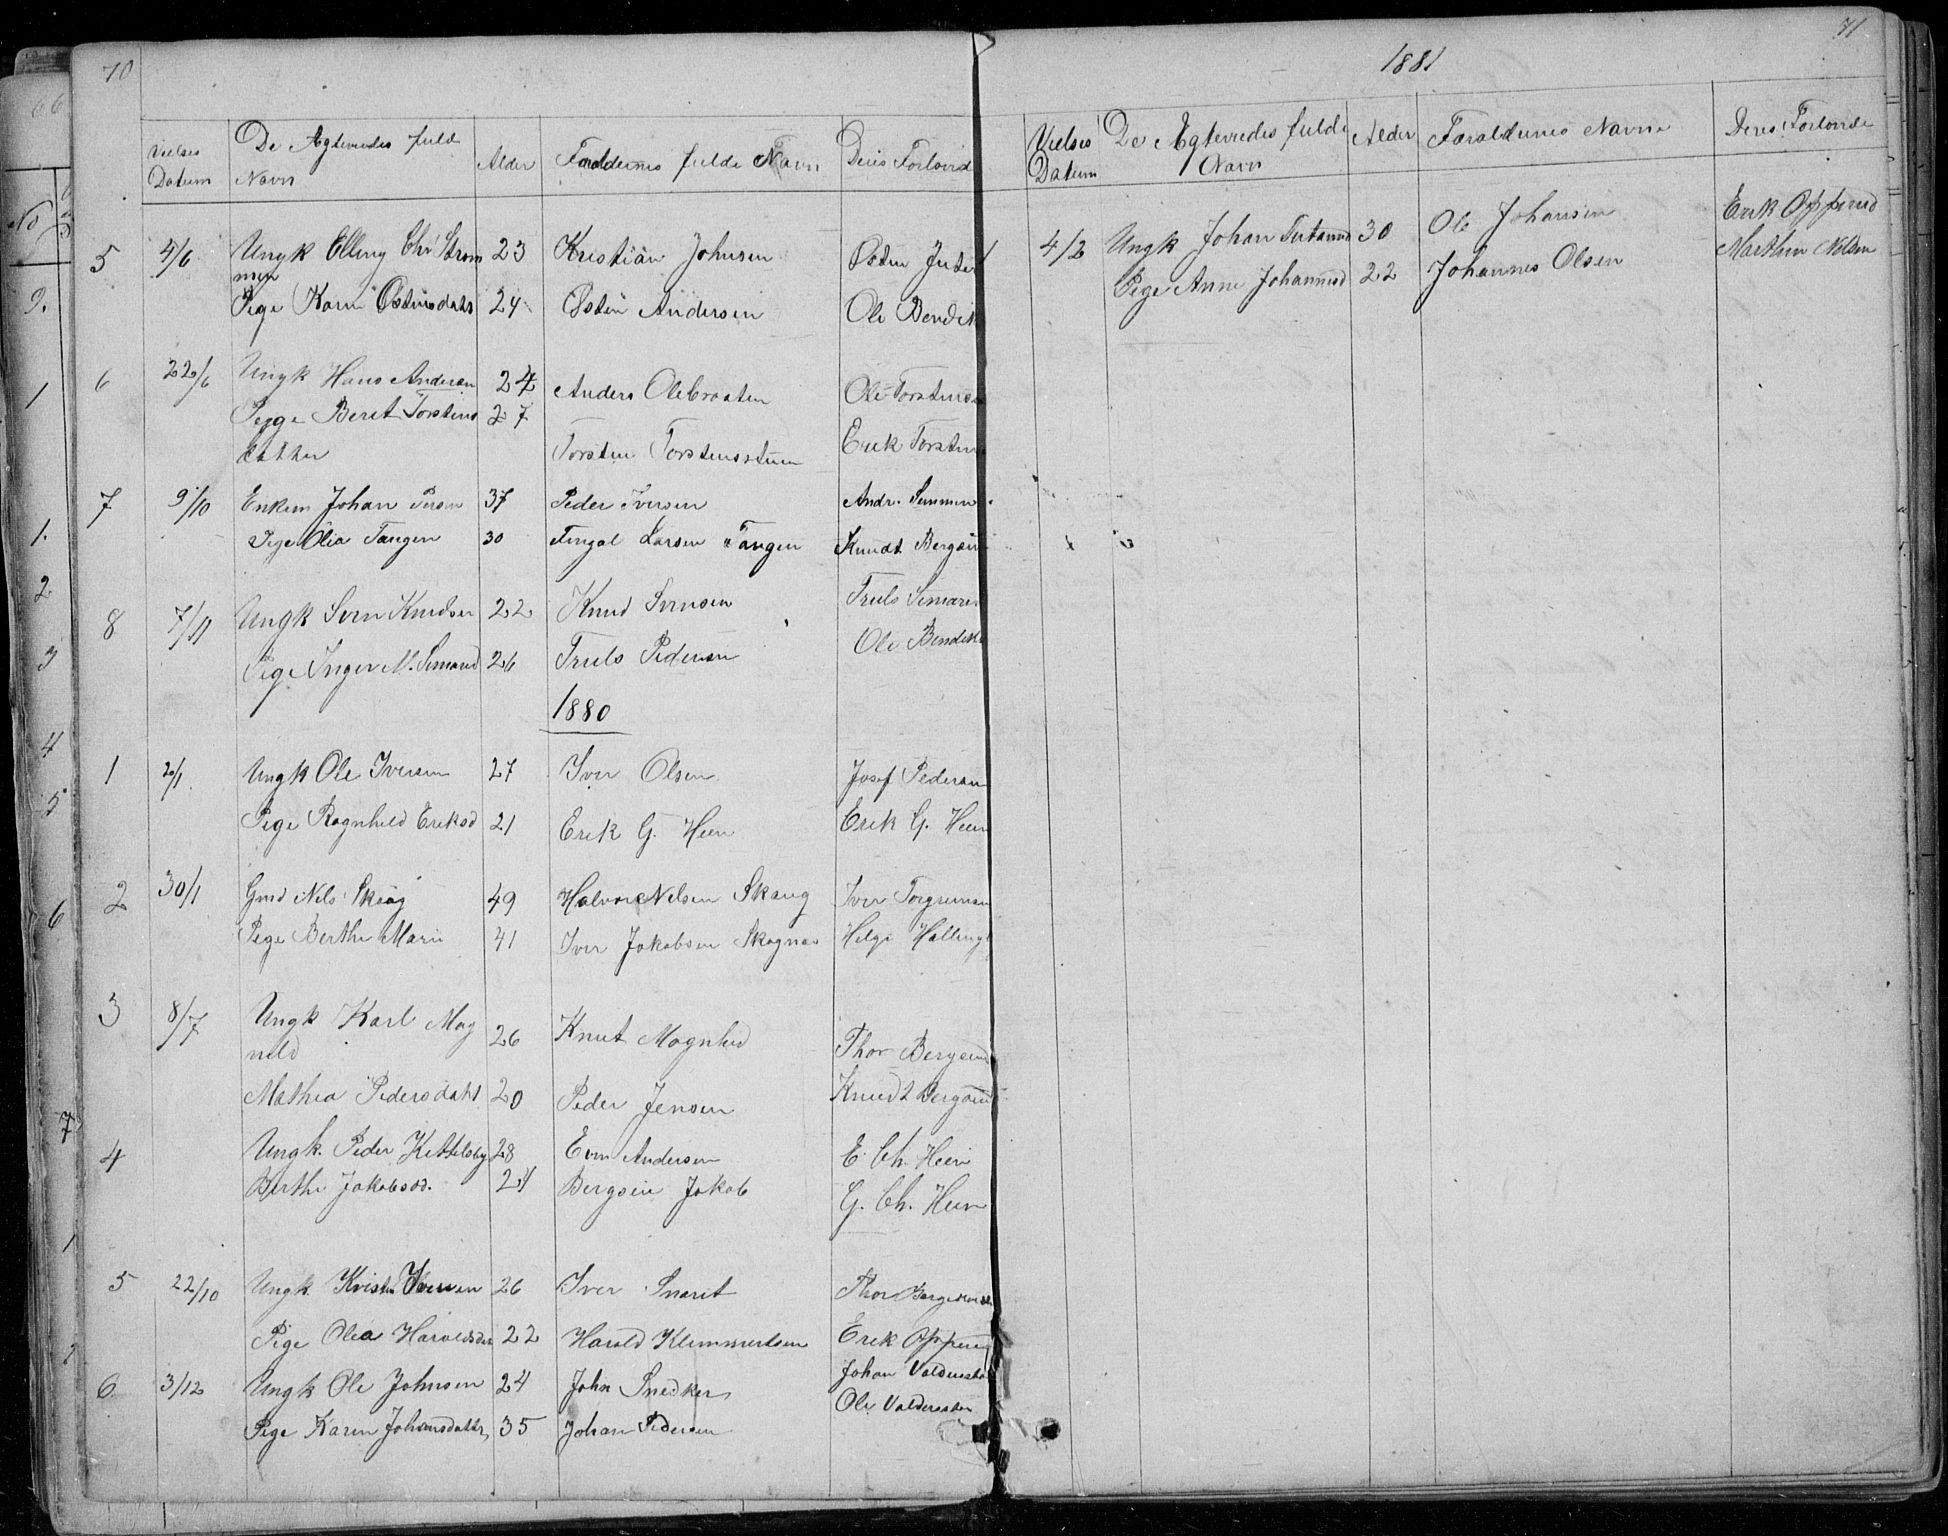 70
Vielses Datum
De Agtevedes fuld Navn
Alder
Foraldernes fulde Navn
Deres Forlovid
5 4/6 Ungk Elling Chr Strom 23 Kristian Johnsen Østen
men
Pige Karn Østensdatr 24 Østen Andersen Ole Bendik
6 22/6 Ungk Hans Andersen 24 Anders Olebraaten Ole Torstens
Pige Beret Torstens 27
datter Torsten Torstensstuen Erik Torsten
7 9/10 Enkem Johan Persen 37 Peder Iversen Andr. Semmen
Pige Olia Tangen 30 Fingal Larsen Tangen Knudt Bergsen
8 7/11 Ungk Sven Knudsen 22 Knud Svensen Truls Simare
Pige Inger M. Simared 26 Truls Pedersen Ole Bendik
1880
1 2/1 Ungk Ole Iversen 27 Iver Olsen Josef Pedersen
Pige Ragnhild Eriksd 21 Erik G. Heen Erik G. Heen
2 30/1 Gmd Nils Skaug 49 Halvor Nelsen Skaug Iver Torgrimsen
Pige Berthe Marie 41 Iver Jakobsen Skognes Helge Halling
3 8/7 Ungk Karl Mag 26 Knut Magnhild Thor Bergsund
nild
Mathea Pedersdatr 20 Peder Jensen Knudt Bergsund
4 Ungk. Peder Kittelsby 28 Even Andersen E. Ch. Heen
Berthe Jakobsd. 24 Bergsein Jakob G. Ch. Heen
5 22/10 Ungk Krist. Iversen 26 Iver Snarit Thor
Pige Olea Haroldsdr 22 Harald Klemmertsen Erik Opperud
6 3/12 Ungk Ole Johnsen 24 John Snedker Johan
Pige Karen Johansdattr 35 Johan Pedersen Ole
71
1881
Vielses Datum
De Egtevedes fulde Navn
Alder
Foraldrenes Navne
Deres Forlovede
1 4/2 Ungk Johan 30 Ole Johansen Erik Opperud
Pige Anne Johannesd 22 Johannes Olsen Marthin Nelsen
66
No
9.
1
1.
2
3
4
5
6
7
1